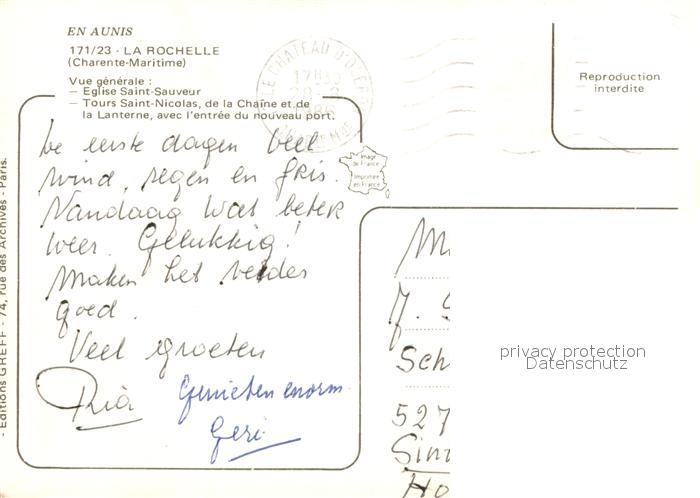 EN AUNIS
171/23 - LA ROCHELLE
(Charente-Maritime)
Vue générale :
— Eglise Saint-Sauveur
— Tours Saint-Nicolas, de la Chaîne et de
la Lanterne, avec l'entrée du nouveau port.
LE CHATEAU D'OLERON
17H
1986
Reproduction
interdite
Image
de France
Imprimée
en France
- Editions GREFF - 74, rue des Archives - Paris.
De eerste dagen veel
wind, regen en fris.
Vandaag wat beter
weer. Gelukkig!
Maken het verder
goed.
Veel groeten
Ria
Genieten enorm.
Geri
M
J. S
Sch
527
Sin
Ho
privacy protection
Datenschutz